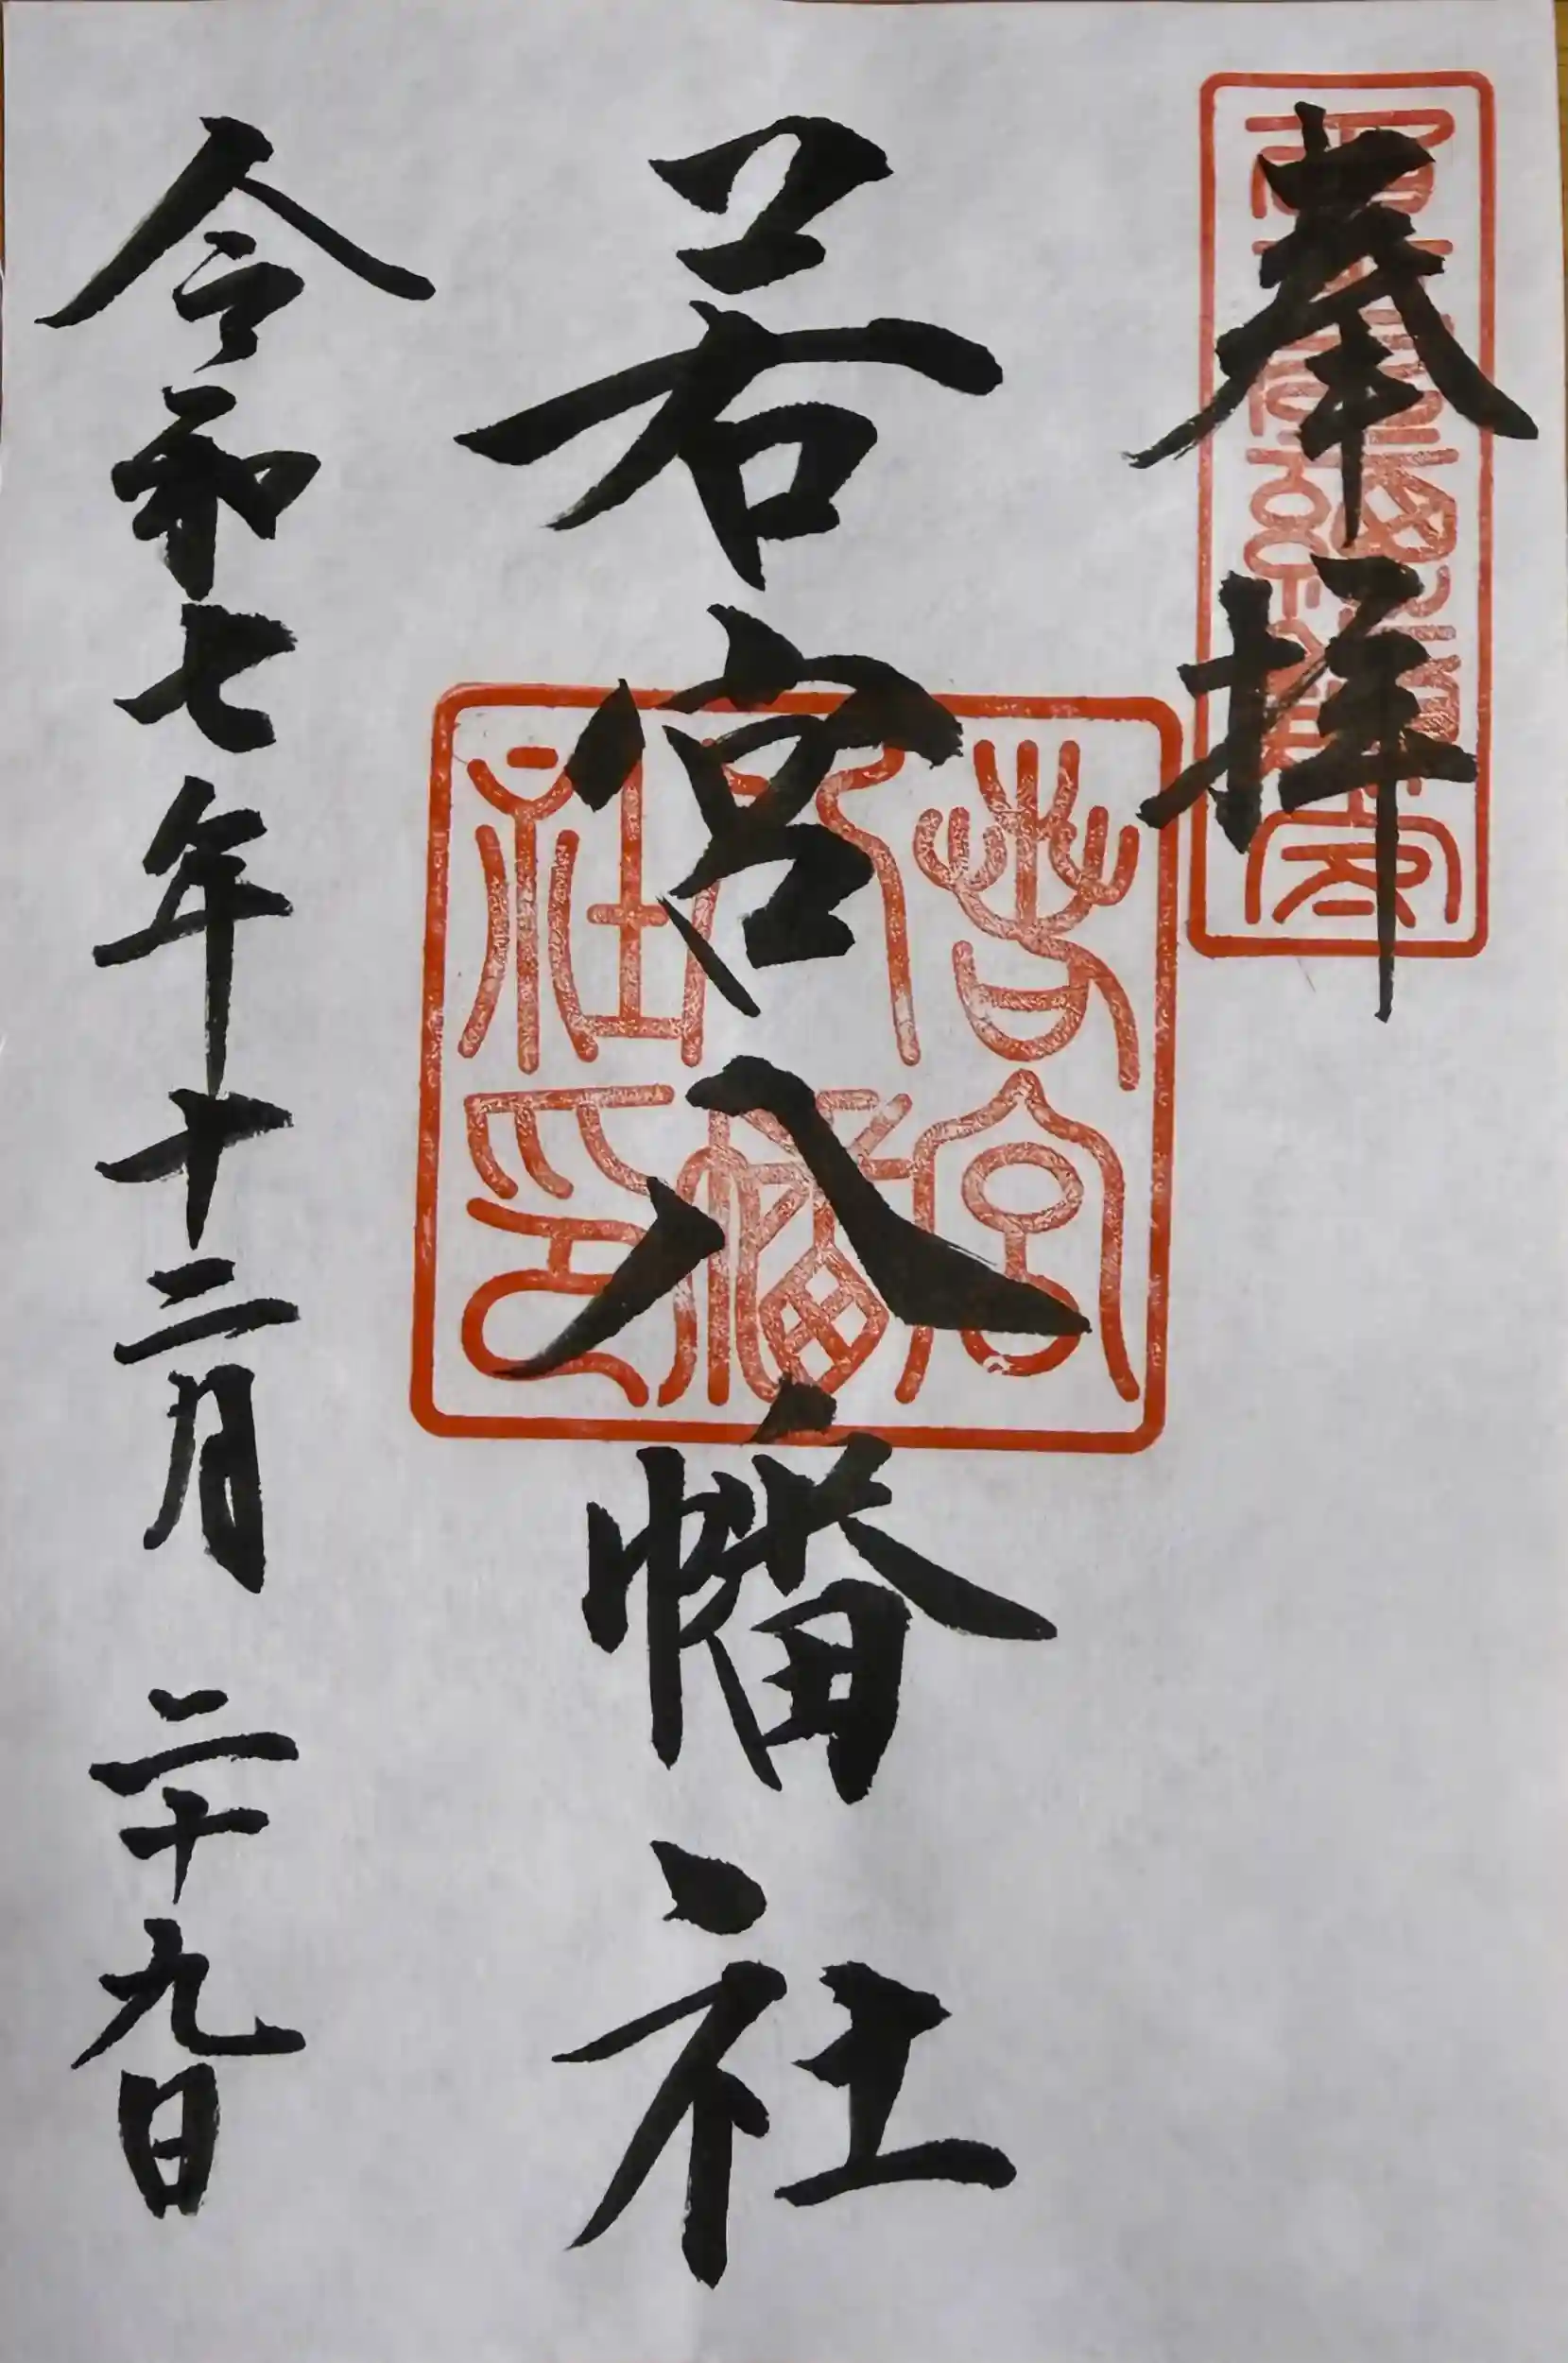 奉拝
若宮八幡社
若宮八幡社印
令和七年十二月二十九日